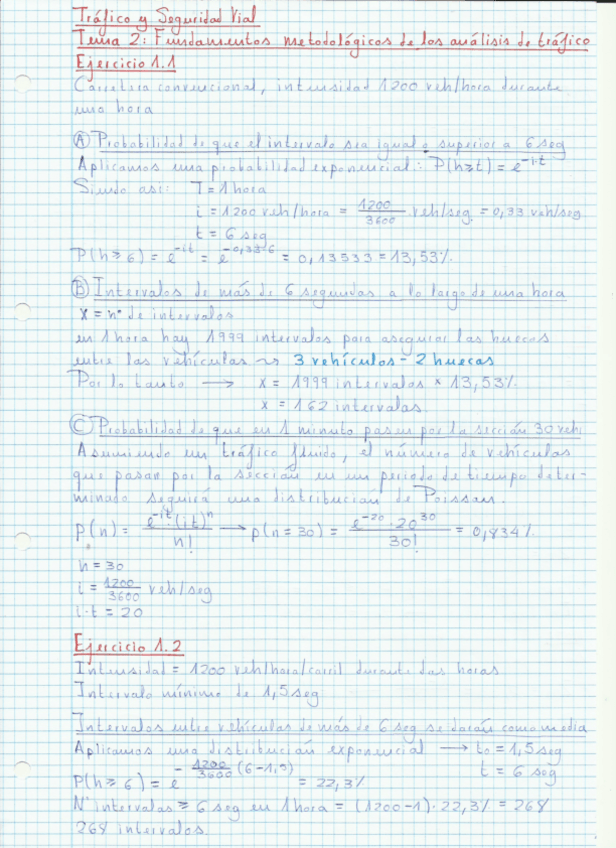 Tráfico y Seguridad Vial
Tema 2: Fundamentos metodológicos de los análisis de tráfico
Ejercicio 1.1
Carretera convencional, intensidad 1200 veh/hora durante
una hora
Ⓐ Probabilidad de que el intervalo sea igual o superior a 6 seg
Aplicamos una probabilidad exponencial: P(h≥t) = e^-i·t
Siendo así: T = 1 hora
i = 1200 veh/hora = 1200/3600 veh/seg = 0,33 veh/seg
t = 6 seg
P(h≥6) = e^-it = e^-0,33·6 = 0,13533 = 13,53%
Ⓑ Intervalos de más de 6 segundos a lo largo de una hora
X = nº de intervalos
en 1 hora hay 1999 intervalos para asegurar los huecos
entre los vehículos ~> 3 vehículos - 2 huecos
Por lo tanto → x = 1999 intervalos * 13,53%
x = 162 intervalos
Ⓒ Probabilidad de que en 1 minuto pasen por la sección 30 veh
Asumiendo un tráfico fluido, el número de vehículos
que pasan por la sección en un periodo de tiempo deter-
minado seguirá una distribución de Poisson.
P(n) = e^-it·(it)^n / n! → p(n=30) = e^-20·20^30 / 30! = 0,834%
n = 30
i = 1200/3600 veh/seg
i·t = 20
Ejercicio 1.2
Intensidad = 1200 veh/hora/carril durante dos horas
Intervalo mínimo de 1,5 seg
Intervalos entre vehículos de más de 6 seg se darán como media
Aplicamos una distribución exponencial → to = 1,5 seg
t = 6 seg
P(h≥6) = e^-1200/3600 (6-1,5) = 22,3%
Nº intervalos ≥ 6 seg en 1 hora = (1200-1)·22,3% = 268
268 intervalos